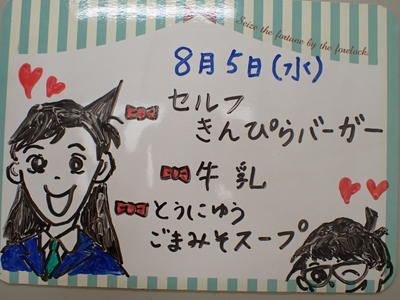 Seize the fortune by the forelock.
8月5日(水)
セルフ
きんぴらバーガー
牛乳
とうにゅう
ごまみそスープ